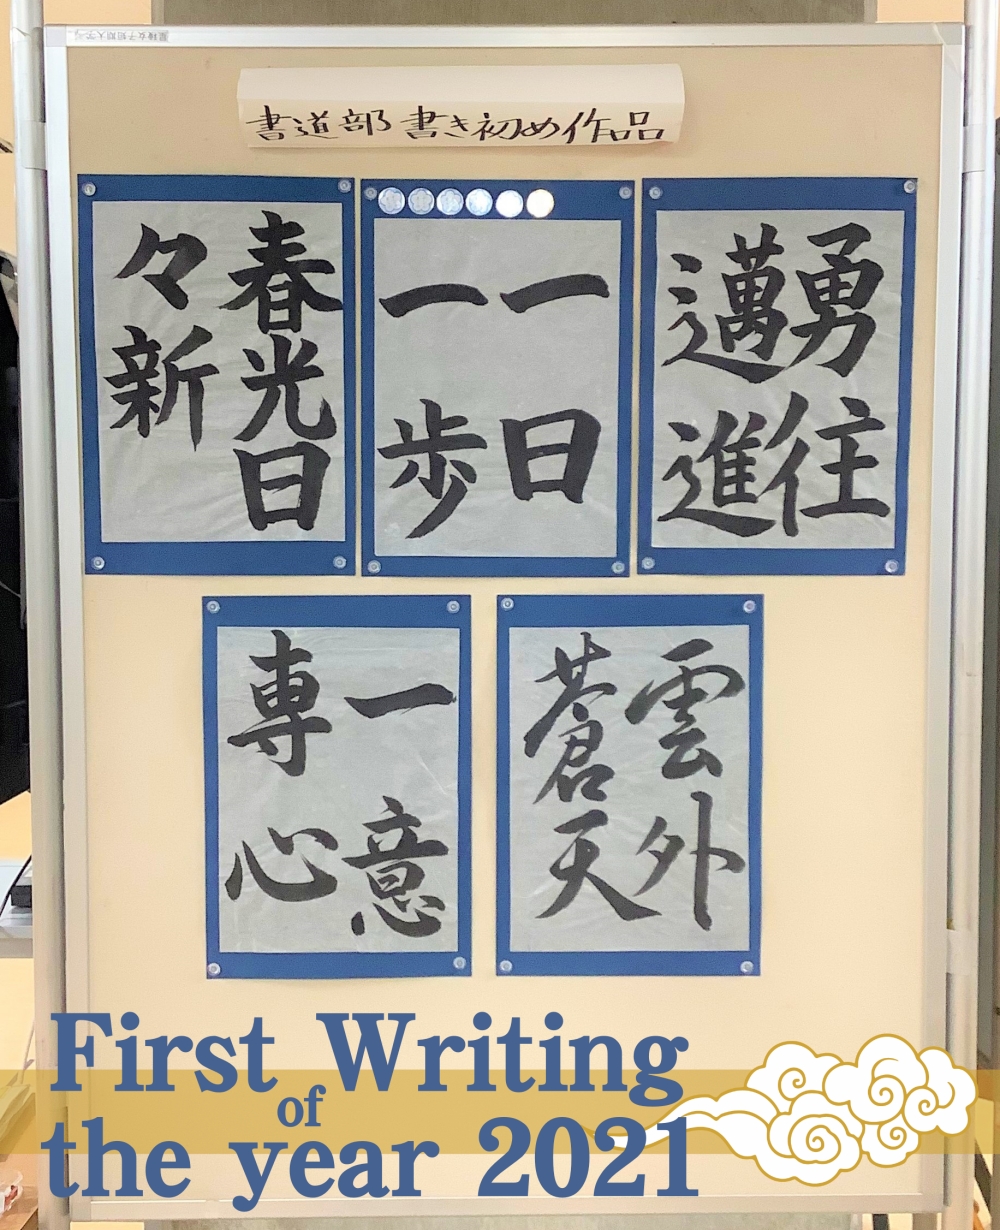 書道部 書き初め作品
勇往
邁進
一日
一歩
春光日
々新
雲外
蒼天
一意
専心
First Writing
of
the year 2021